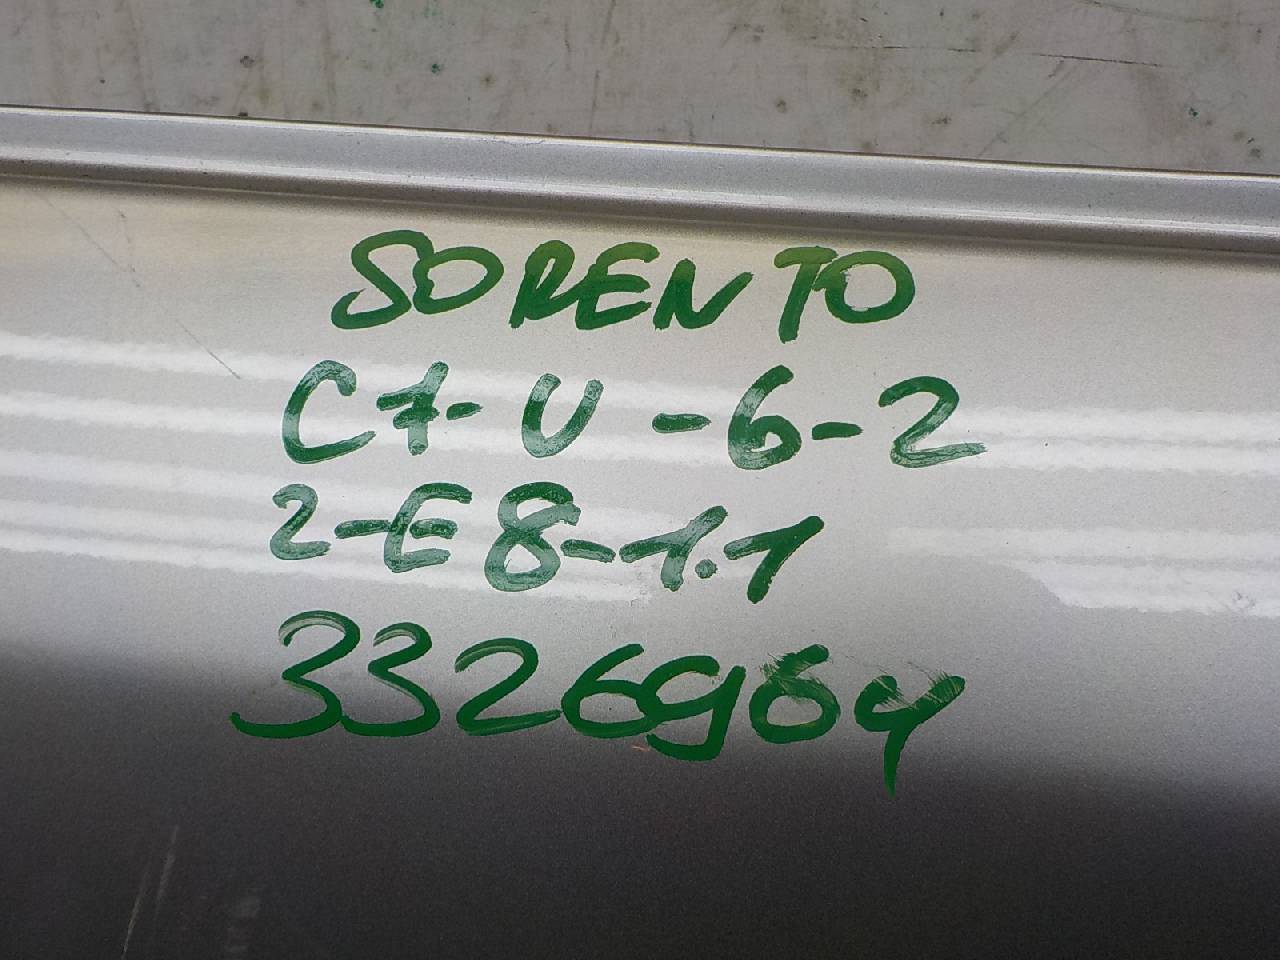 SORENTO
C7-U-6-2
2-E8-1.1
3326964